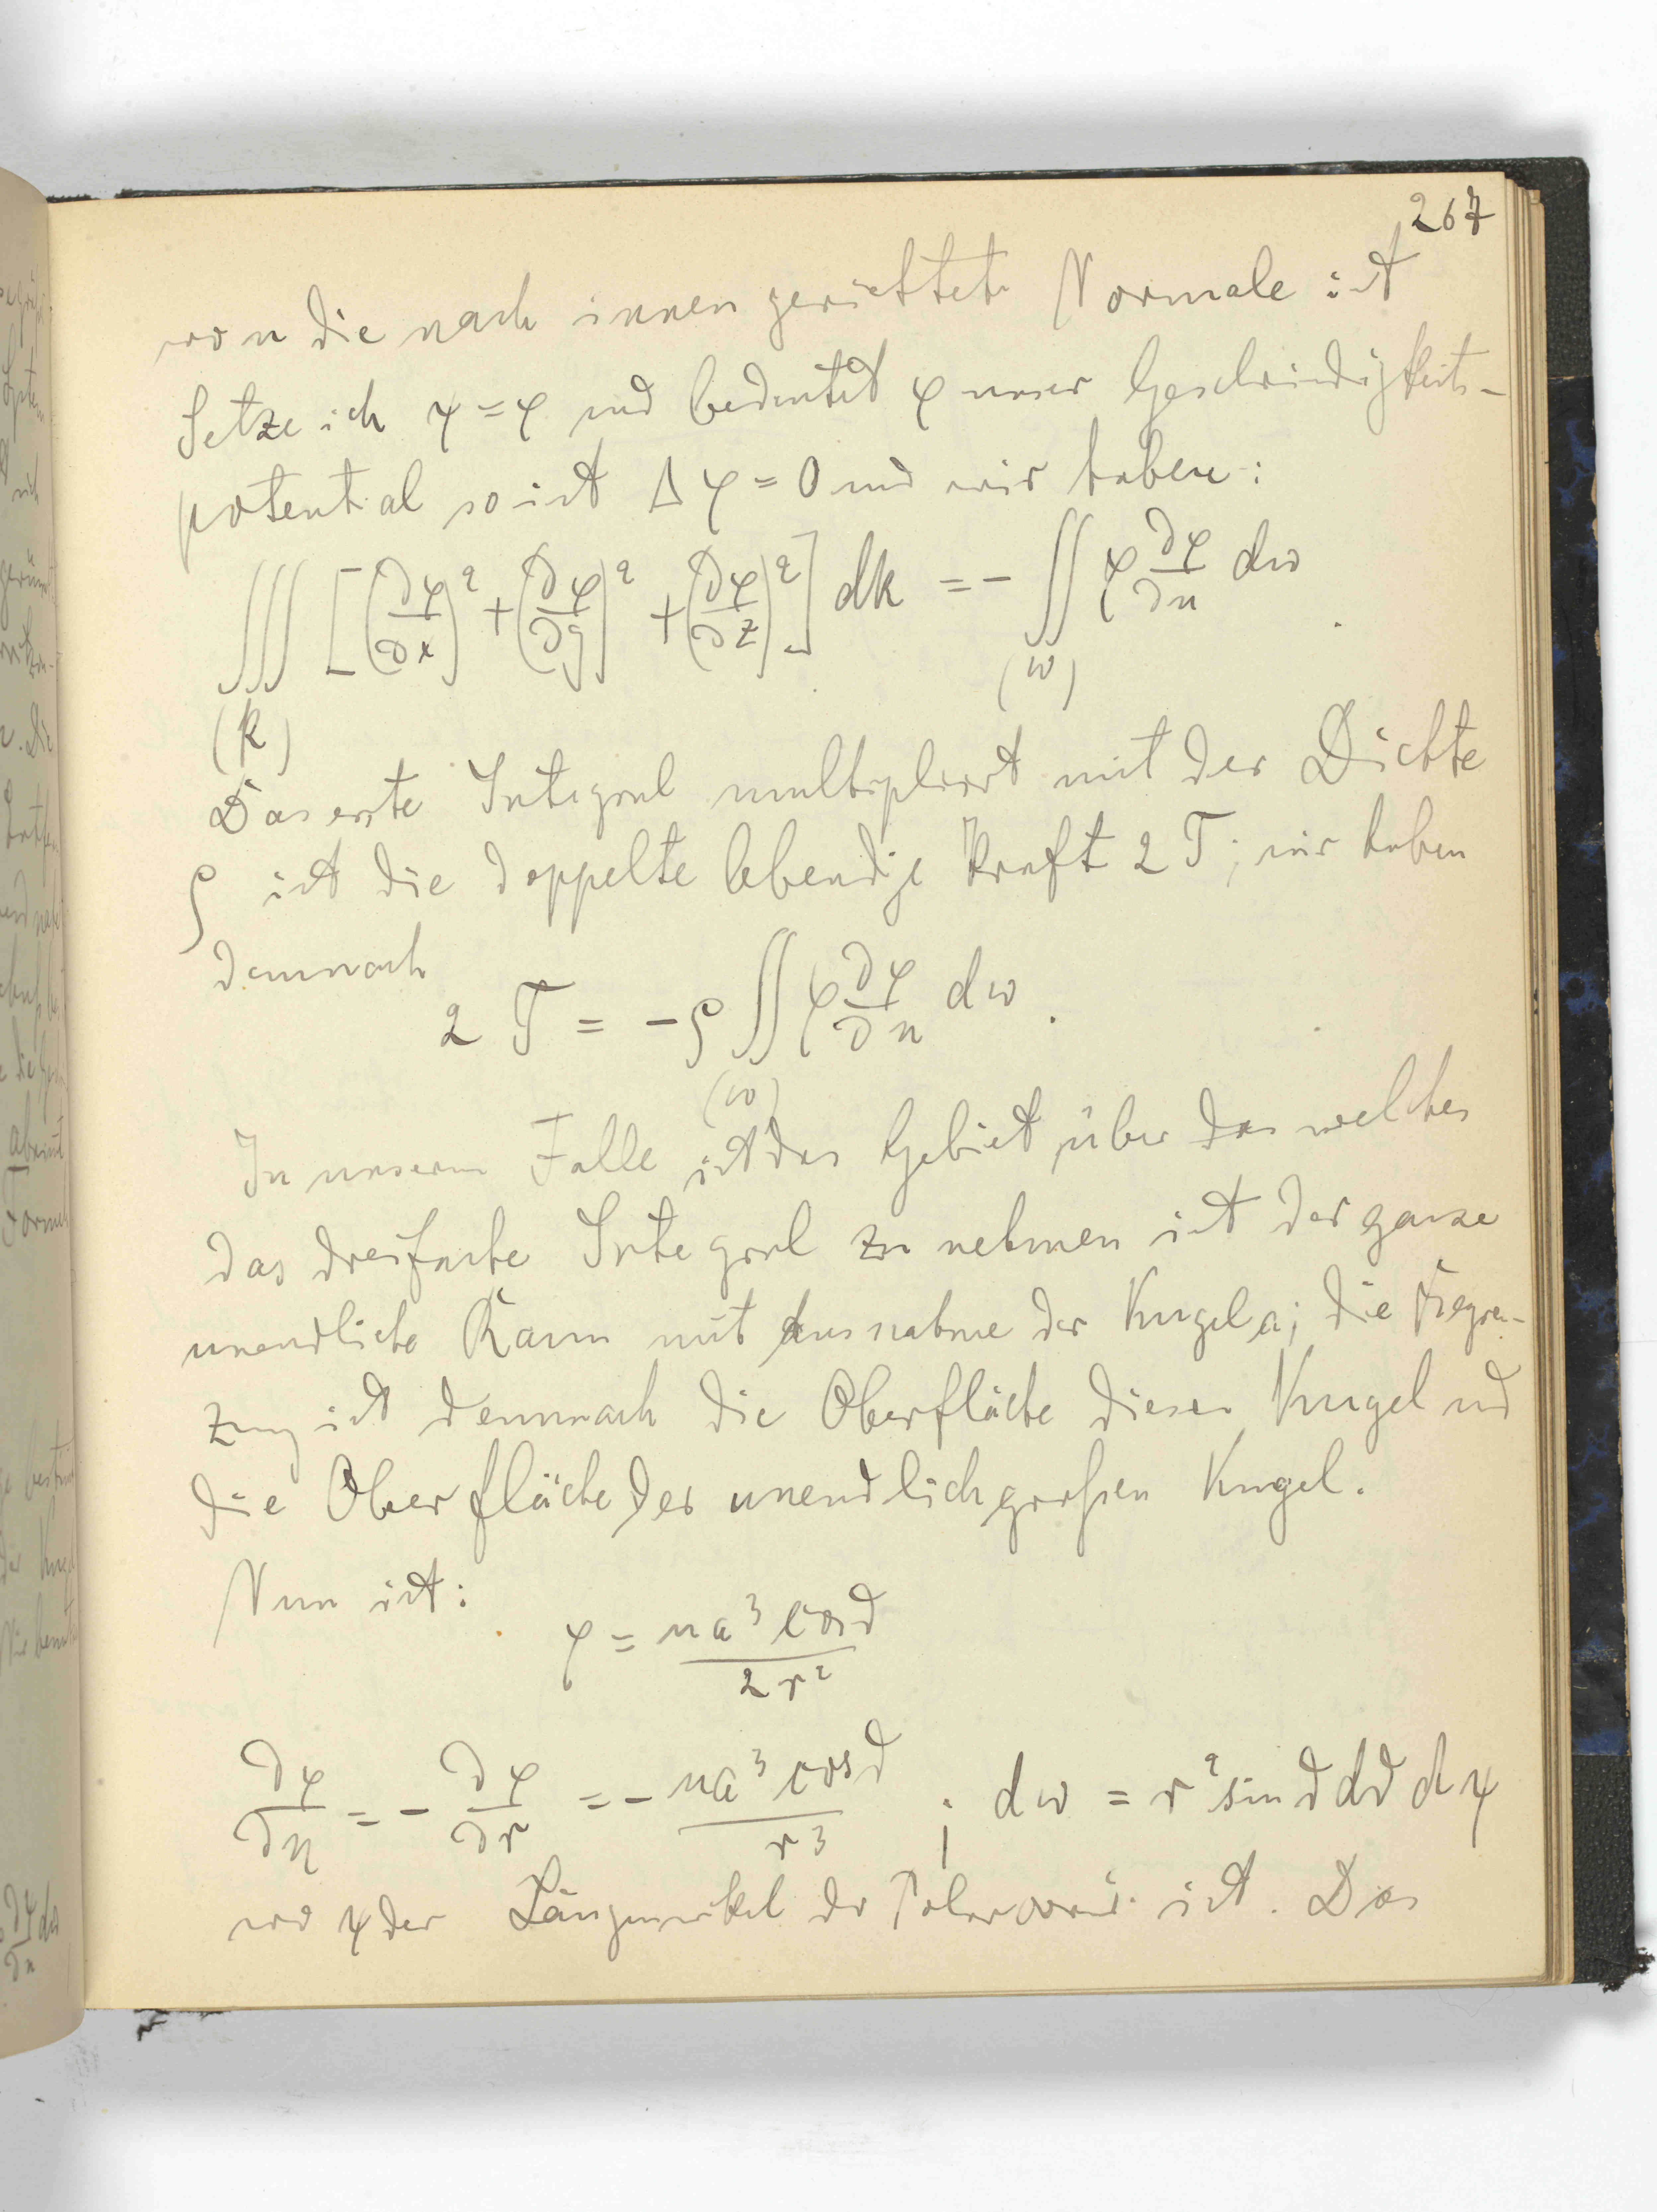 267
wo n die nach innen gerichtete Normale ist
Setze ich ψ = φ und bedeutet φ unser Geschwindigkeits-
potential so ist Δφ = 0 und wir haben:
∭ [(∂φ/∂x)² + (∂φ/∂y)² + (∂φ/∂z)²] dk = - ∬ φ ∂φ/∂n dω
(k) (ω)
Das erste Integral multipliziert mit der Dichte
ρ ist die doppelte lebendige Kraft 2T; wir haben
demnach
2T = -ρ ∬ φ ∂φ/∂n dω.
(ω)
In unserm Falle ist das Gebiet über das welches
das dreifache Integral zu nehmen ist der ganze
unendliche Raum mit Ausnahme der Kugel a; die Begren-
zung ist demnach die Oberfläche dieser Kugel und
die Oberfläche der unendlich großen Kugel.
Nun ist:
φ = ua³ cosϑ / 2r²
∂φ/∂n = - ∂φ/∂r = - ua³ cosϑ / r³ ; dω = r² sinϑ dϑ dψ
wo ψ der Längenwinkel der ist. Das